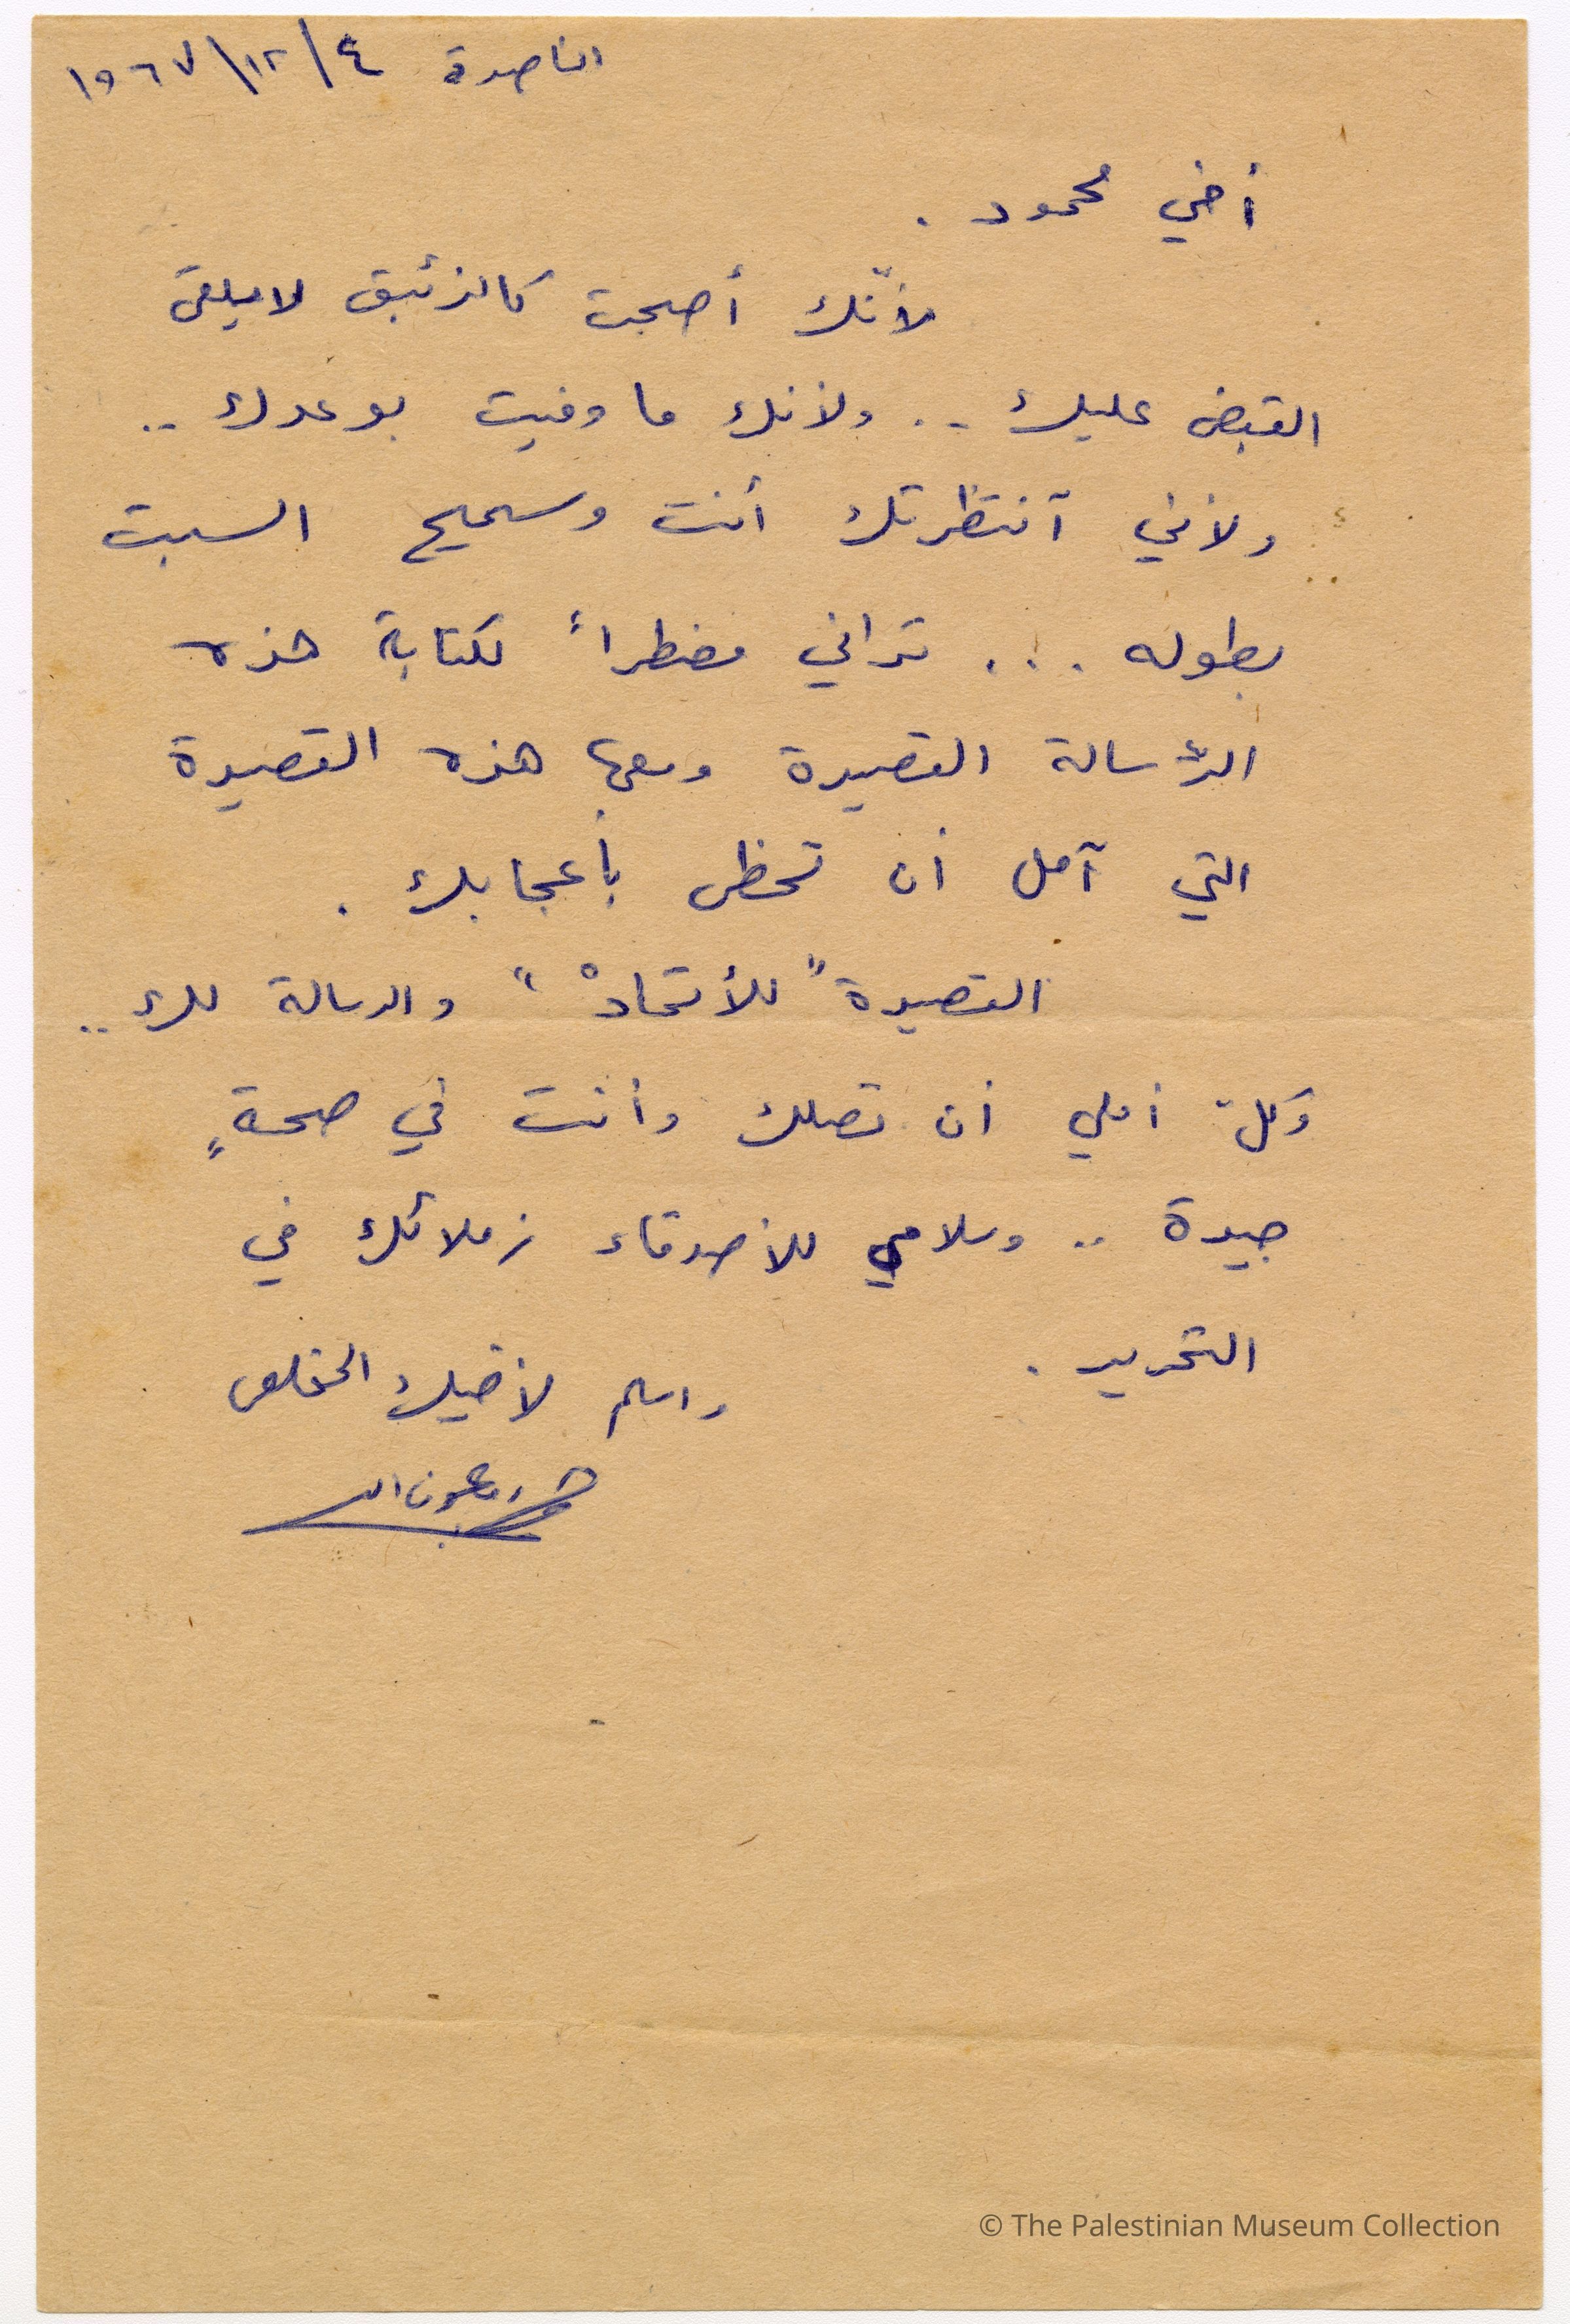 الناصرة ٤/١٢/١٩٦٧
أخي محمود .
لأنّك أصبحت كالزئبق لا يلقى
القبض عليك .. ولأنك ما وفيت بوعدك ..
ولأنني آنتظرتك أنت وسميح السبت
بطوله ... تراني مضطراً لكتابة هذه
الرّسالة القصيرة ومعها هذه القصيدة
التي آمل أن تحظى بأعجابك .
القصيدة "للأتحادْ" والرسالة لك ..
وكلّ أملي أن تصلك وأنت في صحةٍ
جيدة .. وسلامي للأصدقاء زملائك في
التحرير .
واسلم لأخيك المخلص
عون الله
© The Palestinian Museum Collection